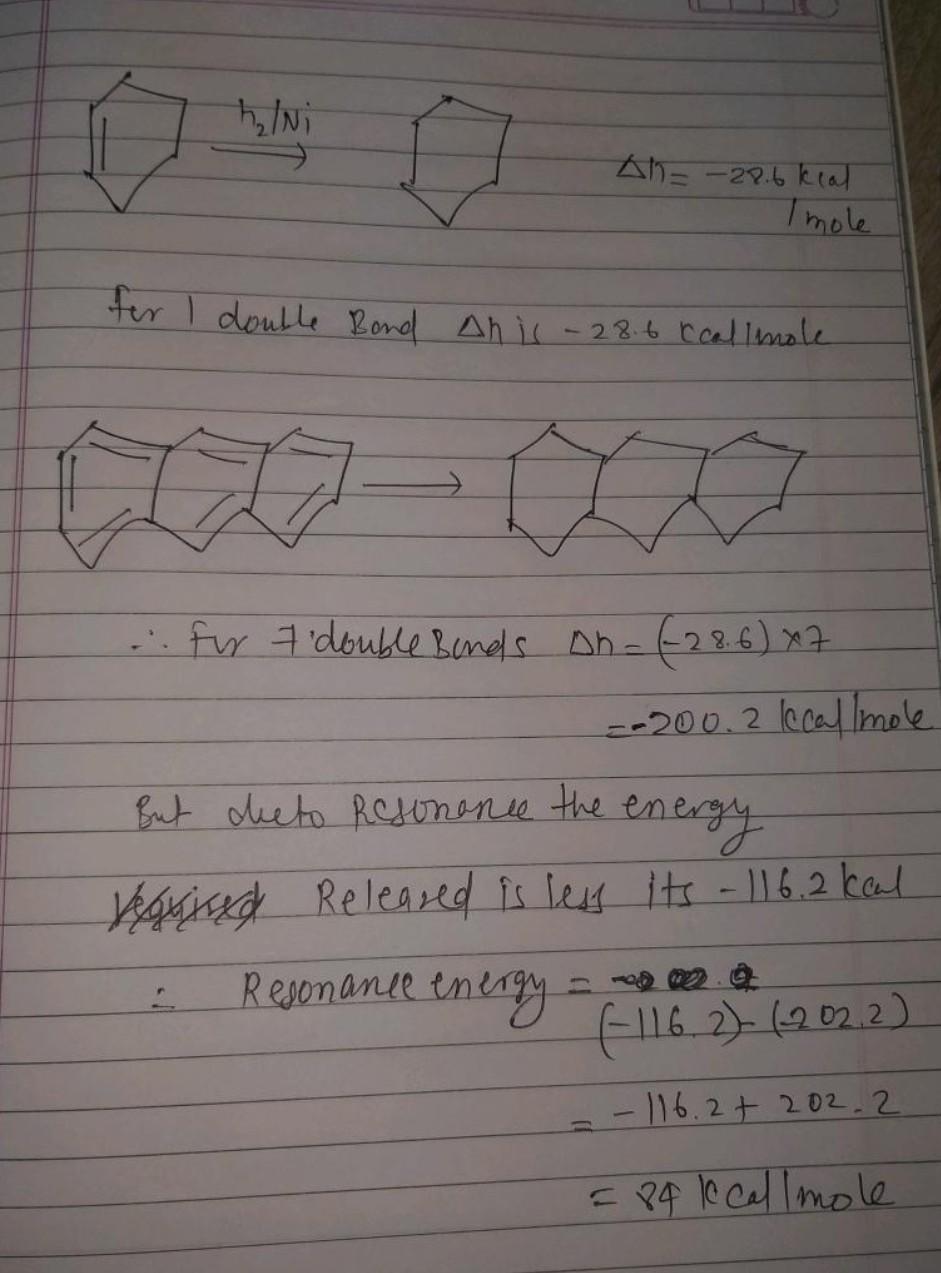 h₂/Ni
Δh = -28.6 kcal
/mole
for 1 double Bond Δh is -28.6 kcal/mole
∴ for 7 double Bonds Δh = (-28.6) x 7
= -200.2 kcal/mole
But due to Resonance the energy
Released is less its -116.2 kcal
∴ Resonance energy =
(-116.2) - (-202.2)
= -116.2 + 202.2
= 84 kcal/mole